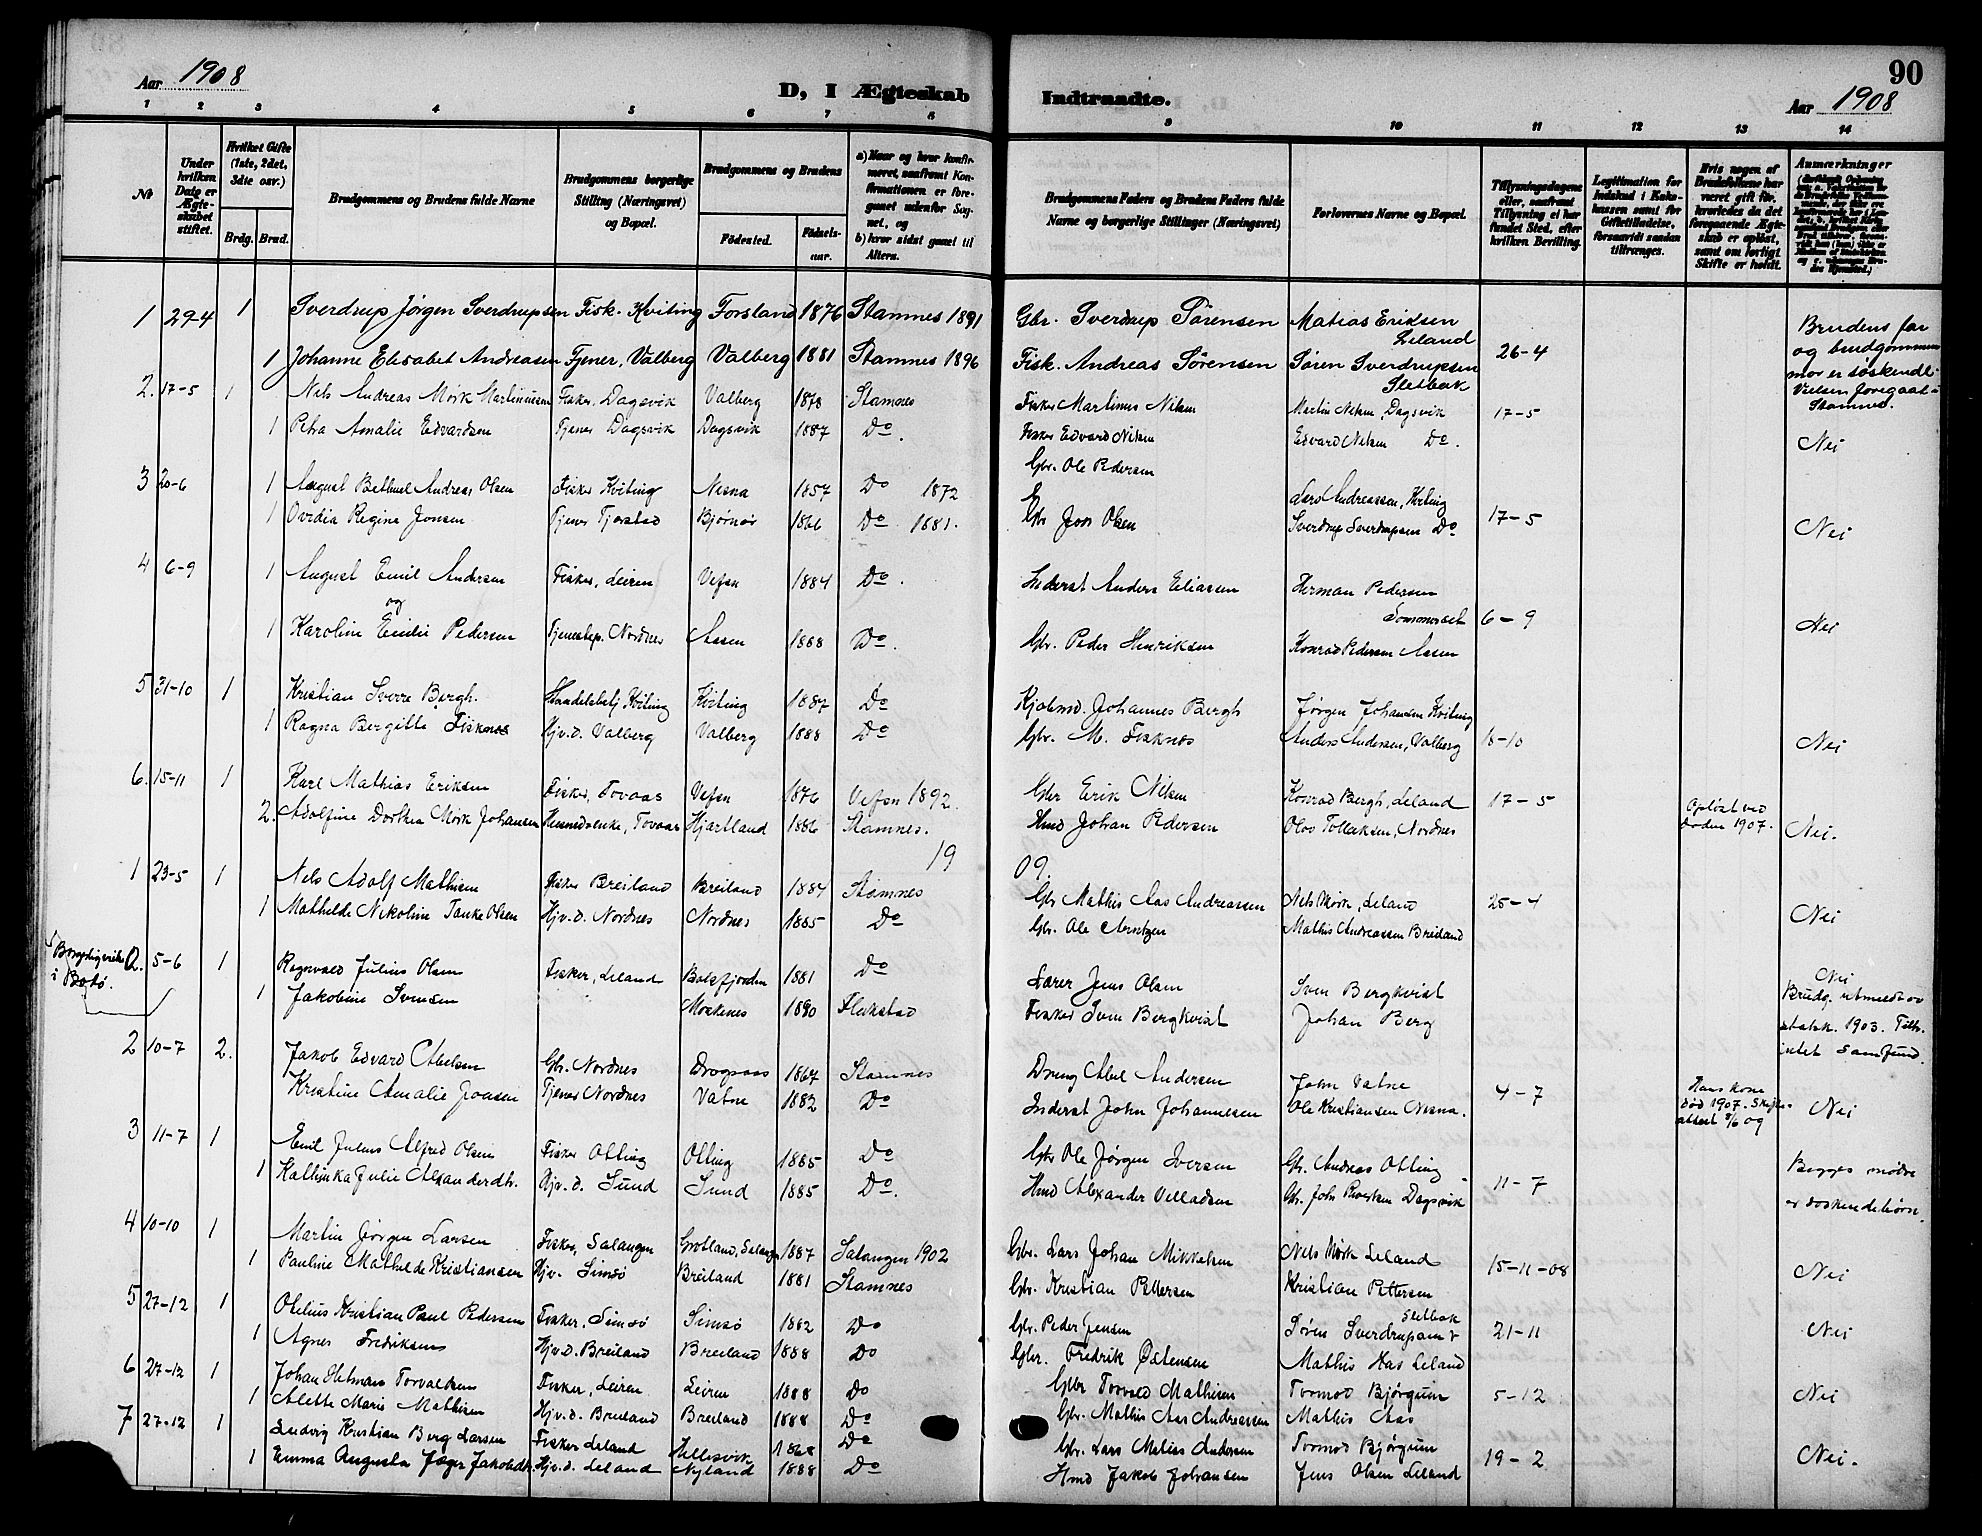 Aar 1908
D, I Ægteskab
Indtraadte.
90
Aar 1908
1 2 3 4 5 6 7 8 9 10 11 12 13 14
№
Under hvilken Dato er Ægteskabet stiftet.
Hvilket Gifte (1ste, 2det, 3die osv.)
Brdg. Brud.
Brudgommens og Brudens fulde Navne
Brudgommens borgerlige Stilling (Næringsvei) og Bopæl.
Brudgommens og Brudens
Fødested. Fødselsaar.
a) Naar og hvor konfirmeret, saafremt Konfirmationen er foregaaet udenfor Sognet, og
b) hvor sidst gaaet til Alters.
Brudgommens Faders og Brudens Faders fulde Navne og borgerlige Stillinger (Næringsvei)
Forlovernes Navne og Bopæl.
Tillysningsdagene eller, saafremt Tillysning ei har fundet Sted, efter hvilken Bevilling.
Legitimation for Indskud i Enkekassen samt for Giftetilladelse, forsaavidt saadan tiltrænges.
Hvis nogen af Brudefolkene har været gift før, hvorledes da det foregaaende Ægteskab er opløst, samt om lovligt Skifte er holdt.
Anmærkninger
1 29-4 1 Sverdrup Jørgen Sverdrupsen Fisk. Kviting Forsland 1876 Stamnes 1891 Gbr. Sverdrup Sørensen Matias Eriksen Leland 26-4 Brudens far og brudgommens mor er søskende. Vielsen foregaat i Stamnes.
1 Johanne Elisabet Andreasen Tjener, Valberg Valberg 1881 Stamnes 1896 Fisk. Andreas Sørensen Søren Sverdrupsen Sletbak
2. 17-5 1 Nils Andreas Mørk Martinusen Fisker, Dagsvik Valberg 1878 Stamnes Fisker Martinus Nilsen Martin Nilsen, Dagsvik 17-5
1 Petra Amalie Edvardsen Tjener Dagsvik Dagsvik 1887 Do. Fisker Edvard Nilsen Edvard Nilsen Do. Nei
3 20-6 1 August Bethuel Andreas Olsen Fisker Kviting Nesna 1857 Do 1872 Gbr. Ole Pedersen Lars Andreassen, Kviting 17-5
1 Ovidia Regine Jonsen Tjener Bjørnør 1866 Do. 1881. Gbr Jon Olsen Sverdrup Sverdrupsen Do Nei
4 6-9 1 August Emil Andersen Fisker, Leiren Vefsn 1884 Do. Inderst Anders Eliassen Herman Pedersen Sommerset 6-9
og
1 Karoline Emilie Pedersen Tjenestep. Nordnes Aasen 1888 Do. Gbr. Peder Henriksen Konrad Pedersen Aasen Nei
5 31-10 1 Kristian Sverre Bergh. Handelsbetj Kviting Kviting 1887 Do Kjøbmd. Johannes Bergh Jørgen Johansen Kviting
1 Ragna Bergitte Fisknes Hjv. D. Valberg Valberg 1888 Do Gbr. M. Fisknes Anders Andersen, Valberg 18-10 Nei
6. 15-11 1 Karl Mathias Eriksen Fisker, Tovaas Vefsn 1876 Vefsn 1892. Gbr Erik Nilsen Konrad Bergh, Leland 17-5 Opløst ved døden 1907.
2. Adolfine Dorthea Mørk Johansen Tovaas Hjartland 1886 Stamnes. Hmd Johan Pedersen Olav Tollefsen, Nordnes Nei.
1909.
1 23-5 1 Nels Adolf Mathisen Fisker Breiland Breiland 1884 Stamnes Gbr Mathis Aas Andreassen Nels Mørk, Leland 25-4
1 Mathilde Nikoline Tanke Olsen Hjv. D. Nordnes Nordnes 1885 Do Gbr. Ole Arntzen Mathis Andreassen Breiland Nei
Borgerligviede i Bodø.
2. 5-6 1 Ragnvald Julius Olsen Fisker, Leland Balsfjorden 1881 Do Lærer Jens Olsen Sven Bergkvist Nei
1 Jakobine Svensen Moskenes 1890 Flakstad Fisker Sven Bergkvist Johan Berg Brudg. utmeldt av statsk. 1903. Tilh. intet samfund.
2 10-7 2. Jakob Edvard Abelsen Gbr. Nordnes 1867 Stamnes Dreng Abel Andersen John Vatne 4-7 Hans kone død 1907. Skifteattest 8/6 09
Kristine Amalie Joasen Tjener Nordnes Vatne 1882 Do Inderst John Johannesen Ole Kristiansen Nesna. Nei
3 11-7 1 Emil Julius Alfred Olsen Fisker Olting Olting 1885 Do Gbr Ole Jørgen Iversen Gbr. Andreas Olting 11-7 Begges mødre er søskendebørn.
1 Kathinka Julie Alexanderdtr. Hjv. D. Sund Sund 1885 Do. Hmd Alexander Villadsen Gbr. John Dagsvik
4 10-10 1 Martin Jørgen Larsen Fisker, Salangen Grøtland, Salangen 1887 Salangen 1902 Gbr. Lars Johan Mikkelsen Nels Mørk Leland 15-11-08
1 Pauline Mathilde Kristiansen Hjv. Simsø Breiland 1881 Stamnes Gbr. Kristian Pettersen Kristian Pettersen Sletbak Nei
5 27-12 1 Otelius Kristian Paul Pedersen Fisker, Simsø Simsø 1882 Do Gbr. Peder Jensen Søren Sverdrupsen 21-11 Nei
1 Agnes Fredriksen Hjv. D. Breiland Breiland 1888 Do Gbr. Fredrik Østensen Mathis Aas Leland
6 27-12 1 Johan Hetman Torvaldsen Fisker, Leiren Leiren 1888 Do Gbr Torvald Mathisen Tormod Bjørgum 5-12 Nei
1 Alette Marie Mathisen Hjv. D. Breiland Breiland 1888 Do Gbr. Mathis Aas Andreassen Mathis Aas
7 27-12 1 Ludvig Kristian Berg Larsen Fisker Leland Hellesvik 1868 Do Gbr. Lars Matias Andersen Tormod Bjørgum 19-2
1 Emma Augusta Jæger Jakobdtr. Hjv. D. Leland Nyland 1888 Do Hmd Jakob Johansen Jens Olsen Leland Nei.